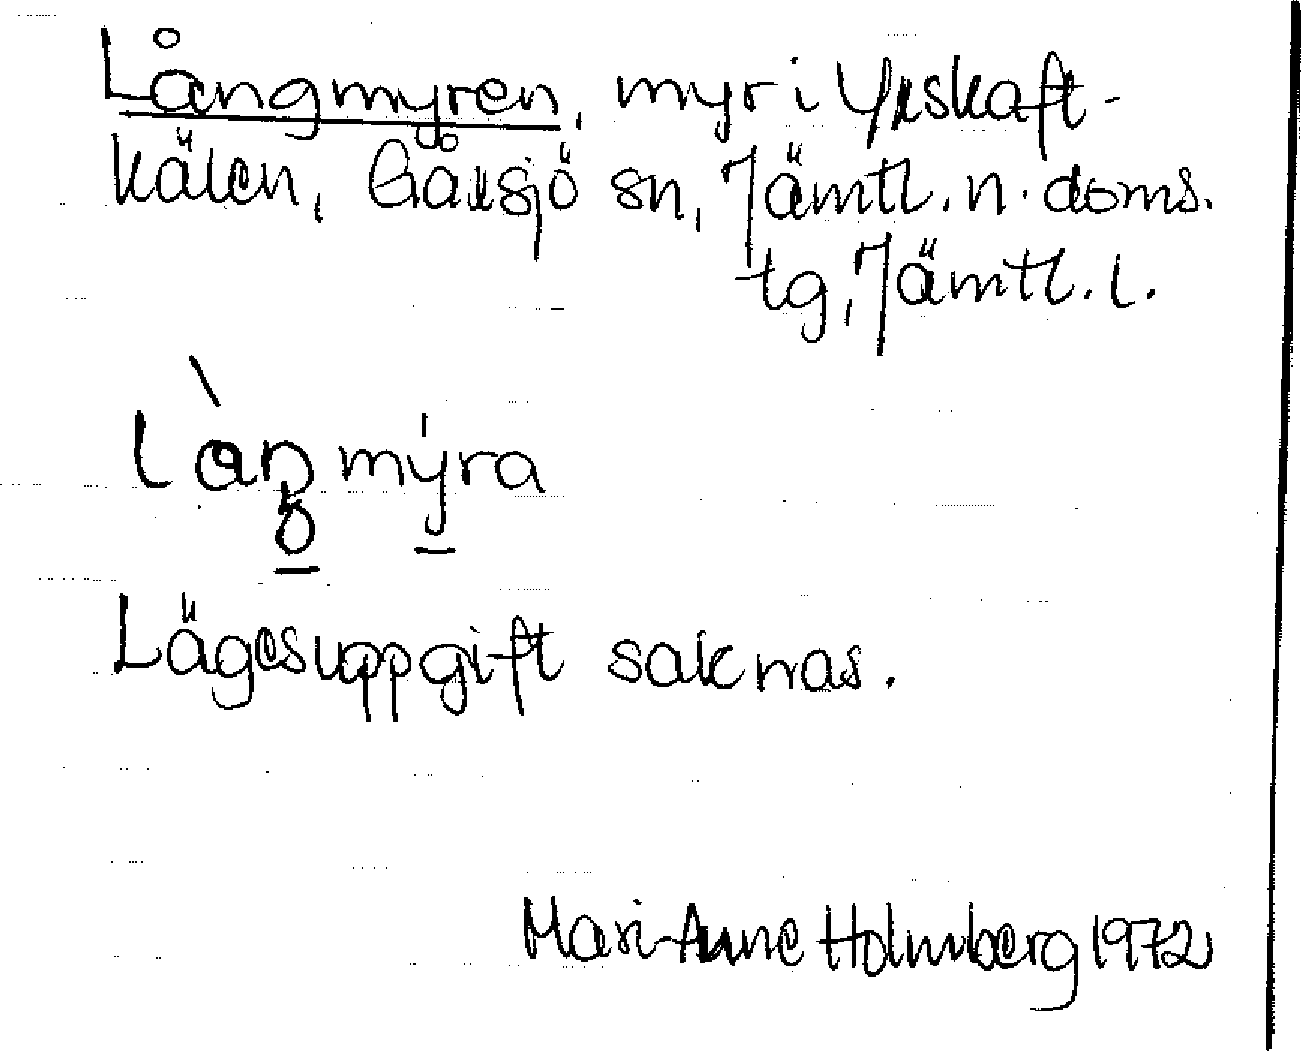 Långmyren, myr i Yxskaft-
kälen, Gåxsjö sn, Jämtl. n. doms.
tg, Jämtl. l.
Lägesuppgift saknas.
Mari-Anne Holmberg 1972